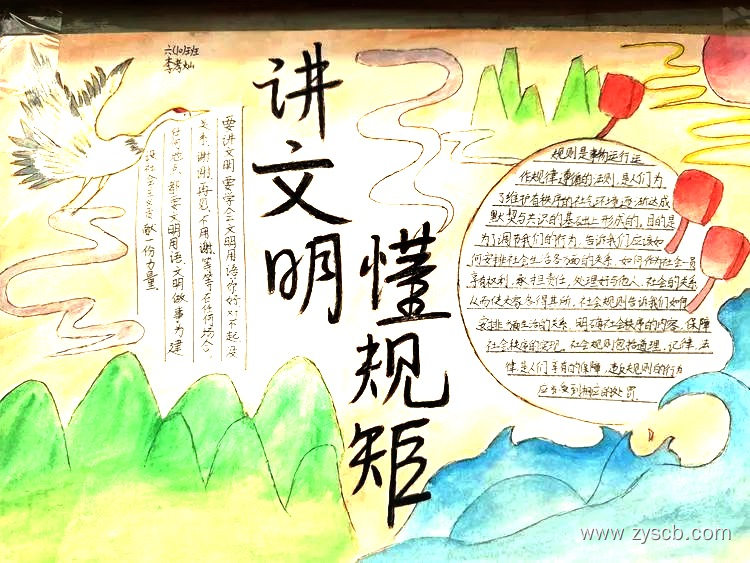 六(10)班
李孝灿
讲文明
懂规矩
要讲文明要学会文明用语:你好 对不起 没
关系 谢谢 再见 不用谢 等等 在任何场合、
任何地点 都要文明用语 文明做事 为建
设社会主义贡献一份力量
规则是事物运行运
作规律遵循的法则,是人们为
了维护有秩序的社会环境 逐渐达成
默契与共识的基础上形成的,目的是
为了调节我们的行为,告诉我们应该如
何安排社会生活各方面的关系,如何作为社会一员
享有权利,承担责任,处理好与他人、社会的关系
从而使大家各得其所,社会规则告诉我们如何
安排 生活的关系,明确社会秩序的内容,保障
社会秩序的实现。社会规则包括道理、纪律、法
律,是人们享有的保障,违反规则的行为
应当受到相应的处罚
www.zyscb.com